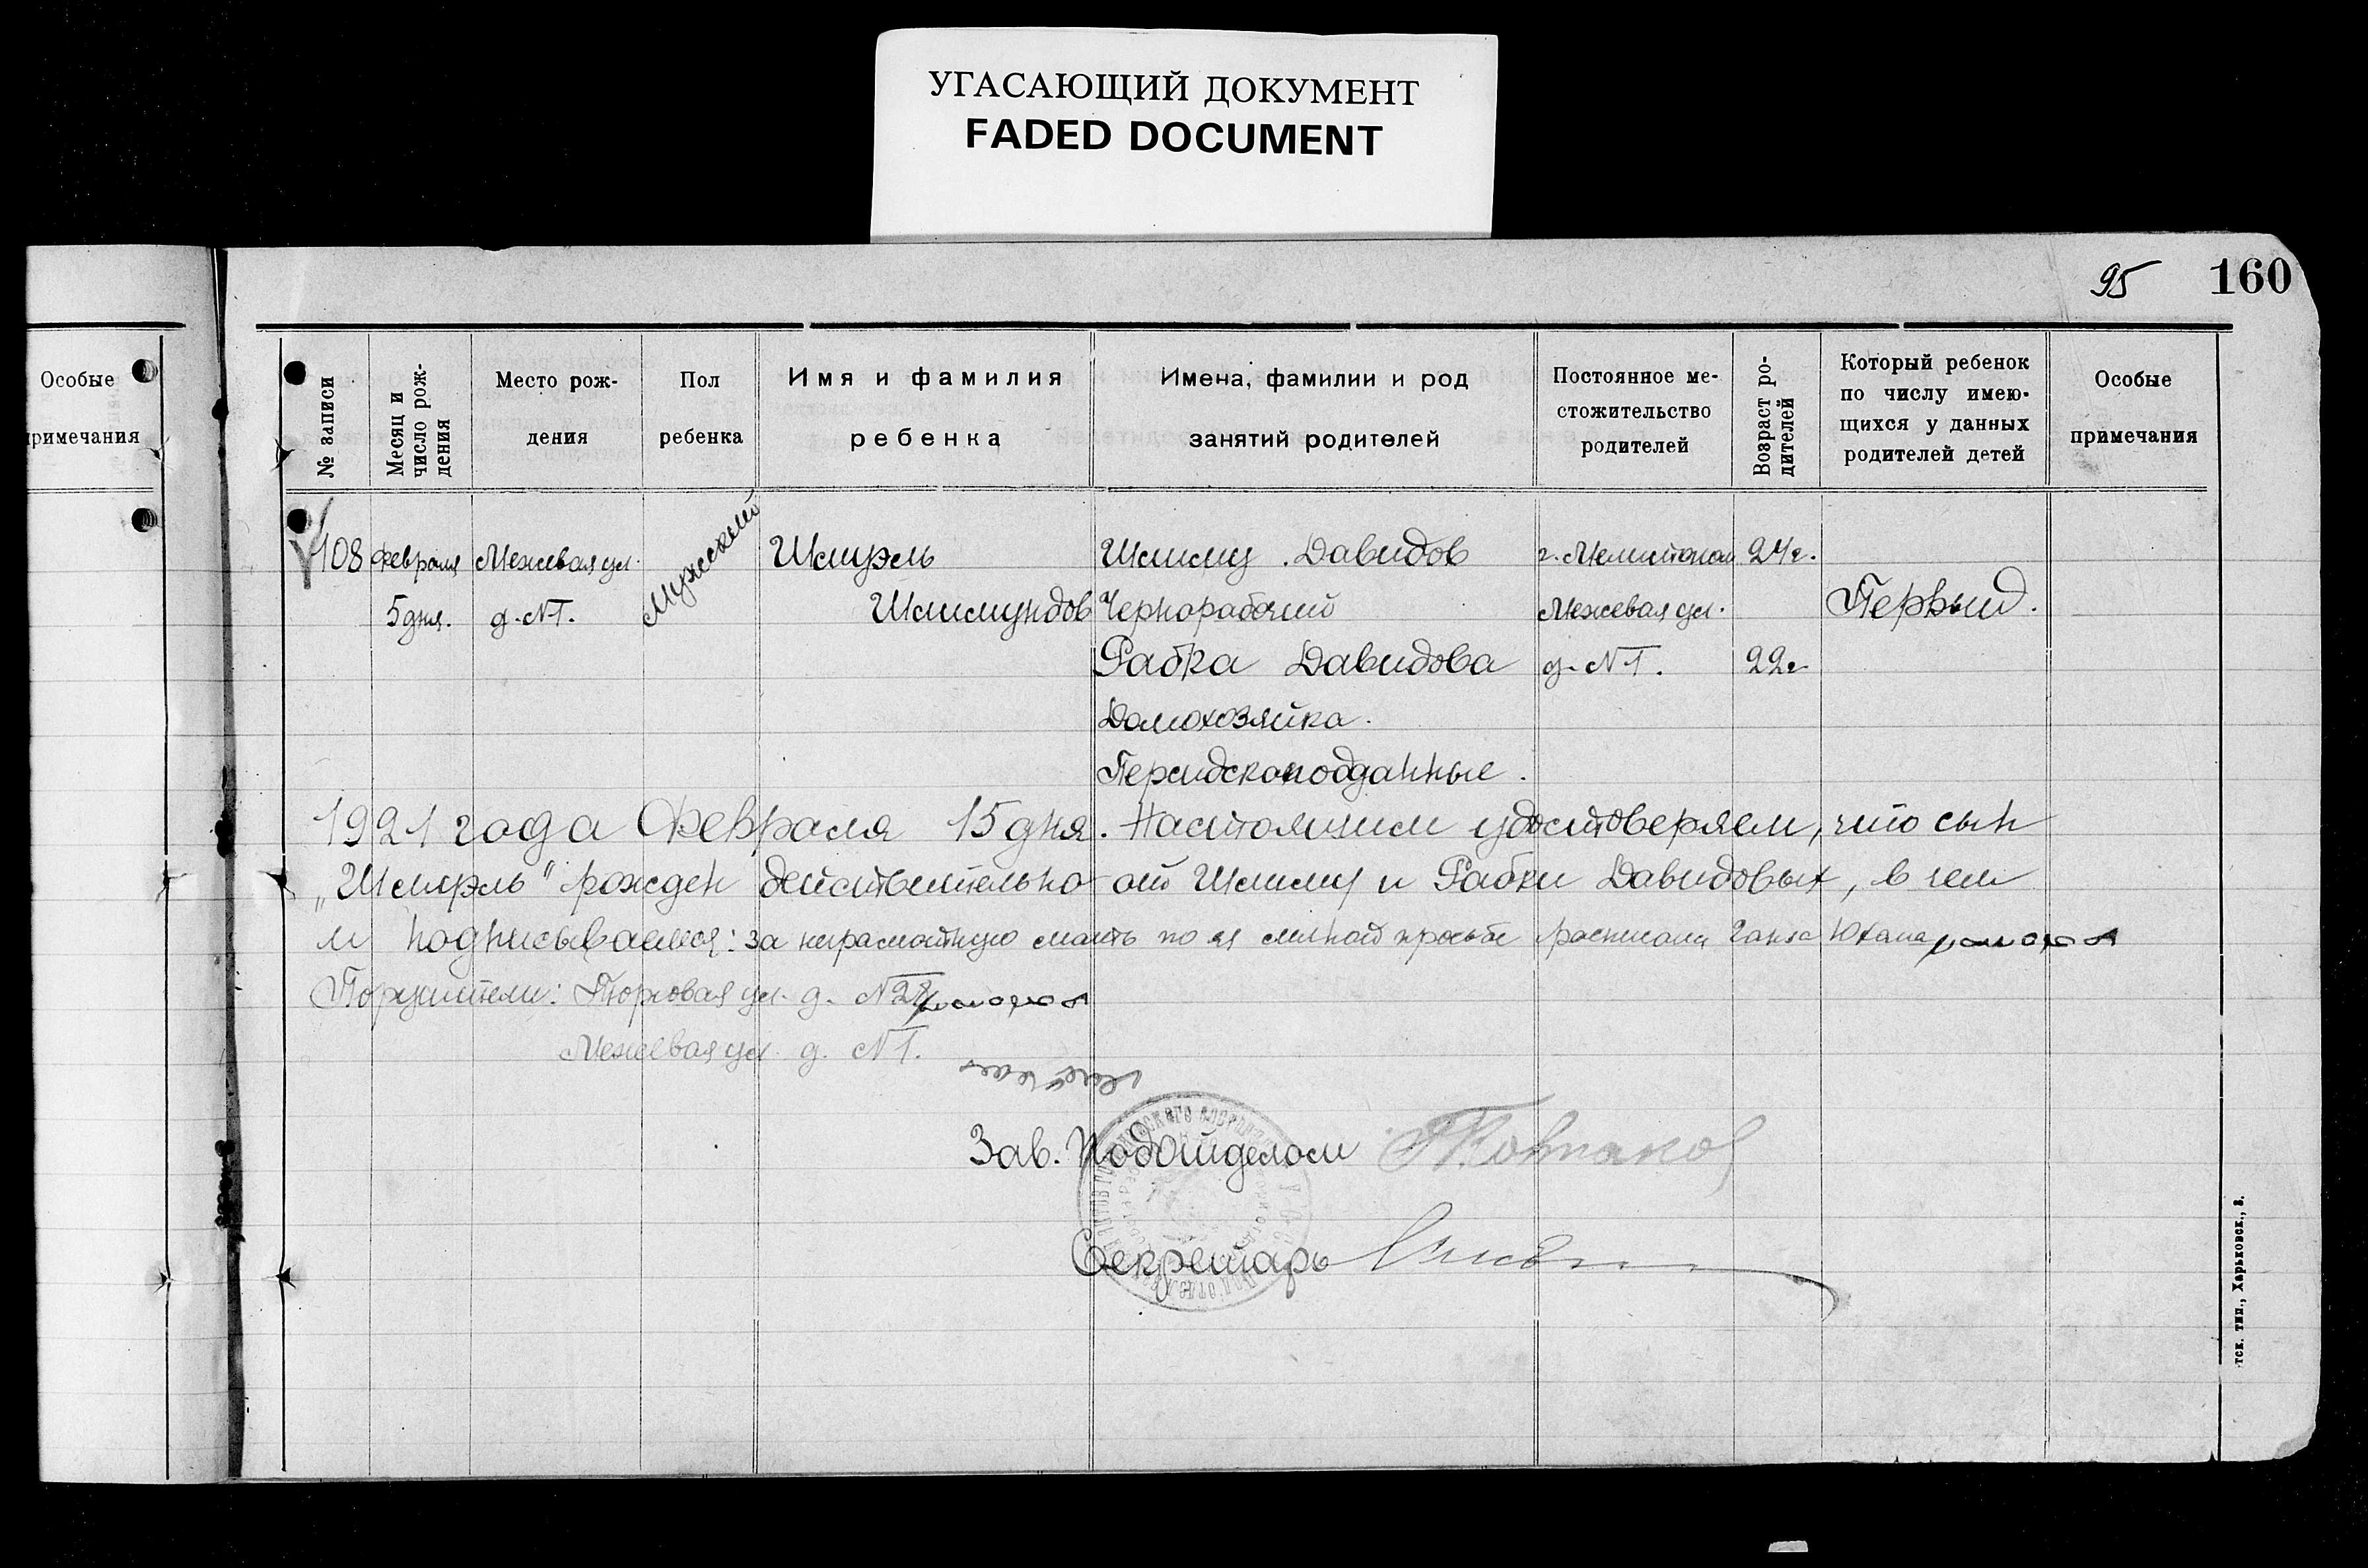 УГАСАЮЩИЙ ДОКУМЕНТ
FADED DOCUMENT
95 160
Особые
римечания
№ записи
Месяц и число рождения
Место рож-
дения
Пол
ребенка
Имя и фамилия
ребенка
Имена, фамилии и род
занятий родителей
Постоянное ме-
стожительство
родителей
Возраст ро-
дителей
Который ребенок
по числу имею-
щихся у данных
родителей детей
Особые
примечания
108
Февраля
5 дня.
Межевая ул.
д. №1.
Мужский
Шмуэль
Шлимундов
Шлиму Давидов
Чернорабочий
Рабка Давидова
Домохозяйка.
Персидскоподданные.
г. Мелитополь
Межевая ул.
д. №1.
24 г.
22 г.
Первый.
1921 года Февраля 15 дня. Настоящим удостоверяем, что сын
„Шмуэль" рожден действительно от Шлиму и Рабки Давидовых, в чем
и подписываемся: за неграмотную мать по ея личной просьбе
Поручители: Торговая ул. д.
Межевая ул. д. №1.
Зав. Подотделом
Секретарь
тск. тип., Харьковск., 8.